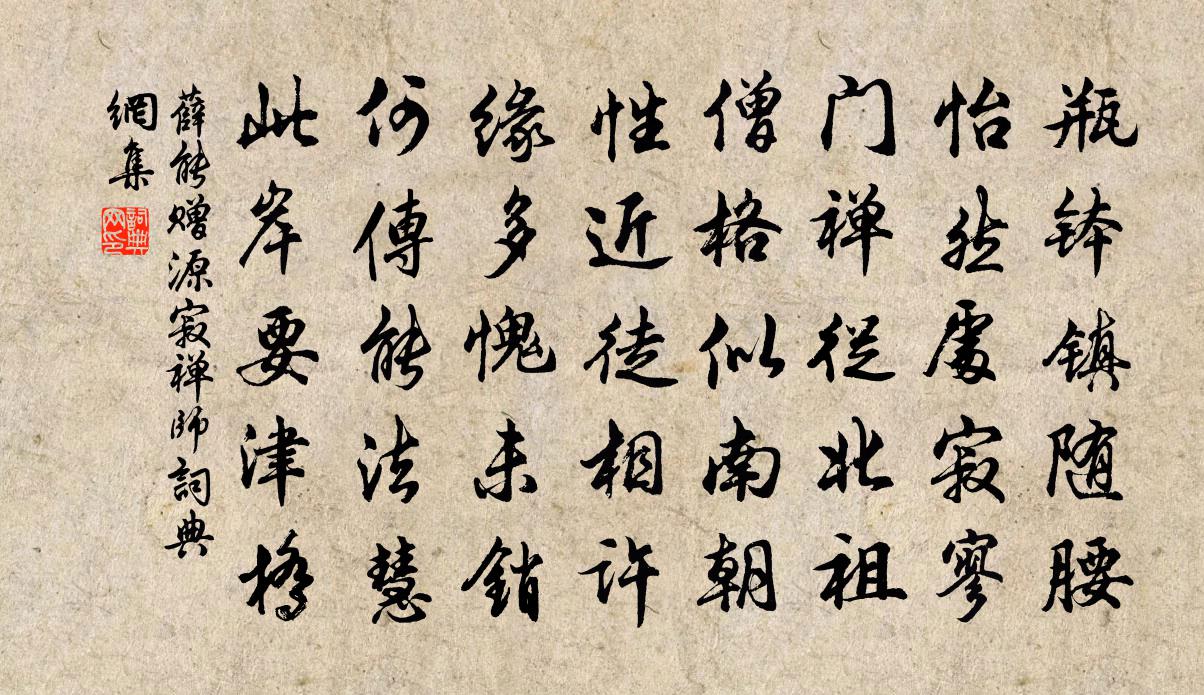 瓶钵镇随腰
怡然處寂寥
门禅從北祖
僧格似南朝
性近徒相許
缘多愧未銷
何傳能法慧
此岸要津橋
薛能赠源寂禅师詞典
網集
詞典
网印